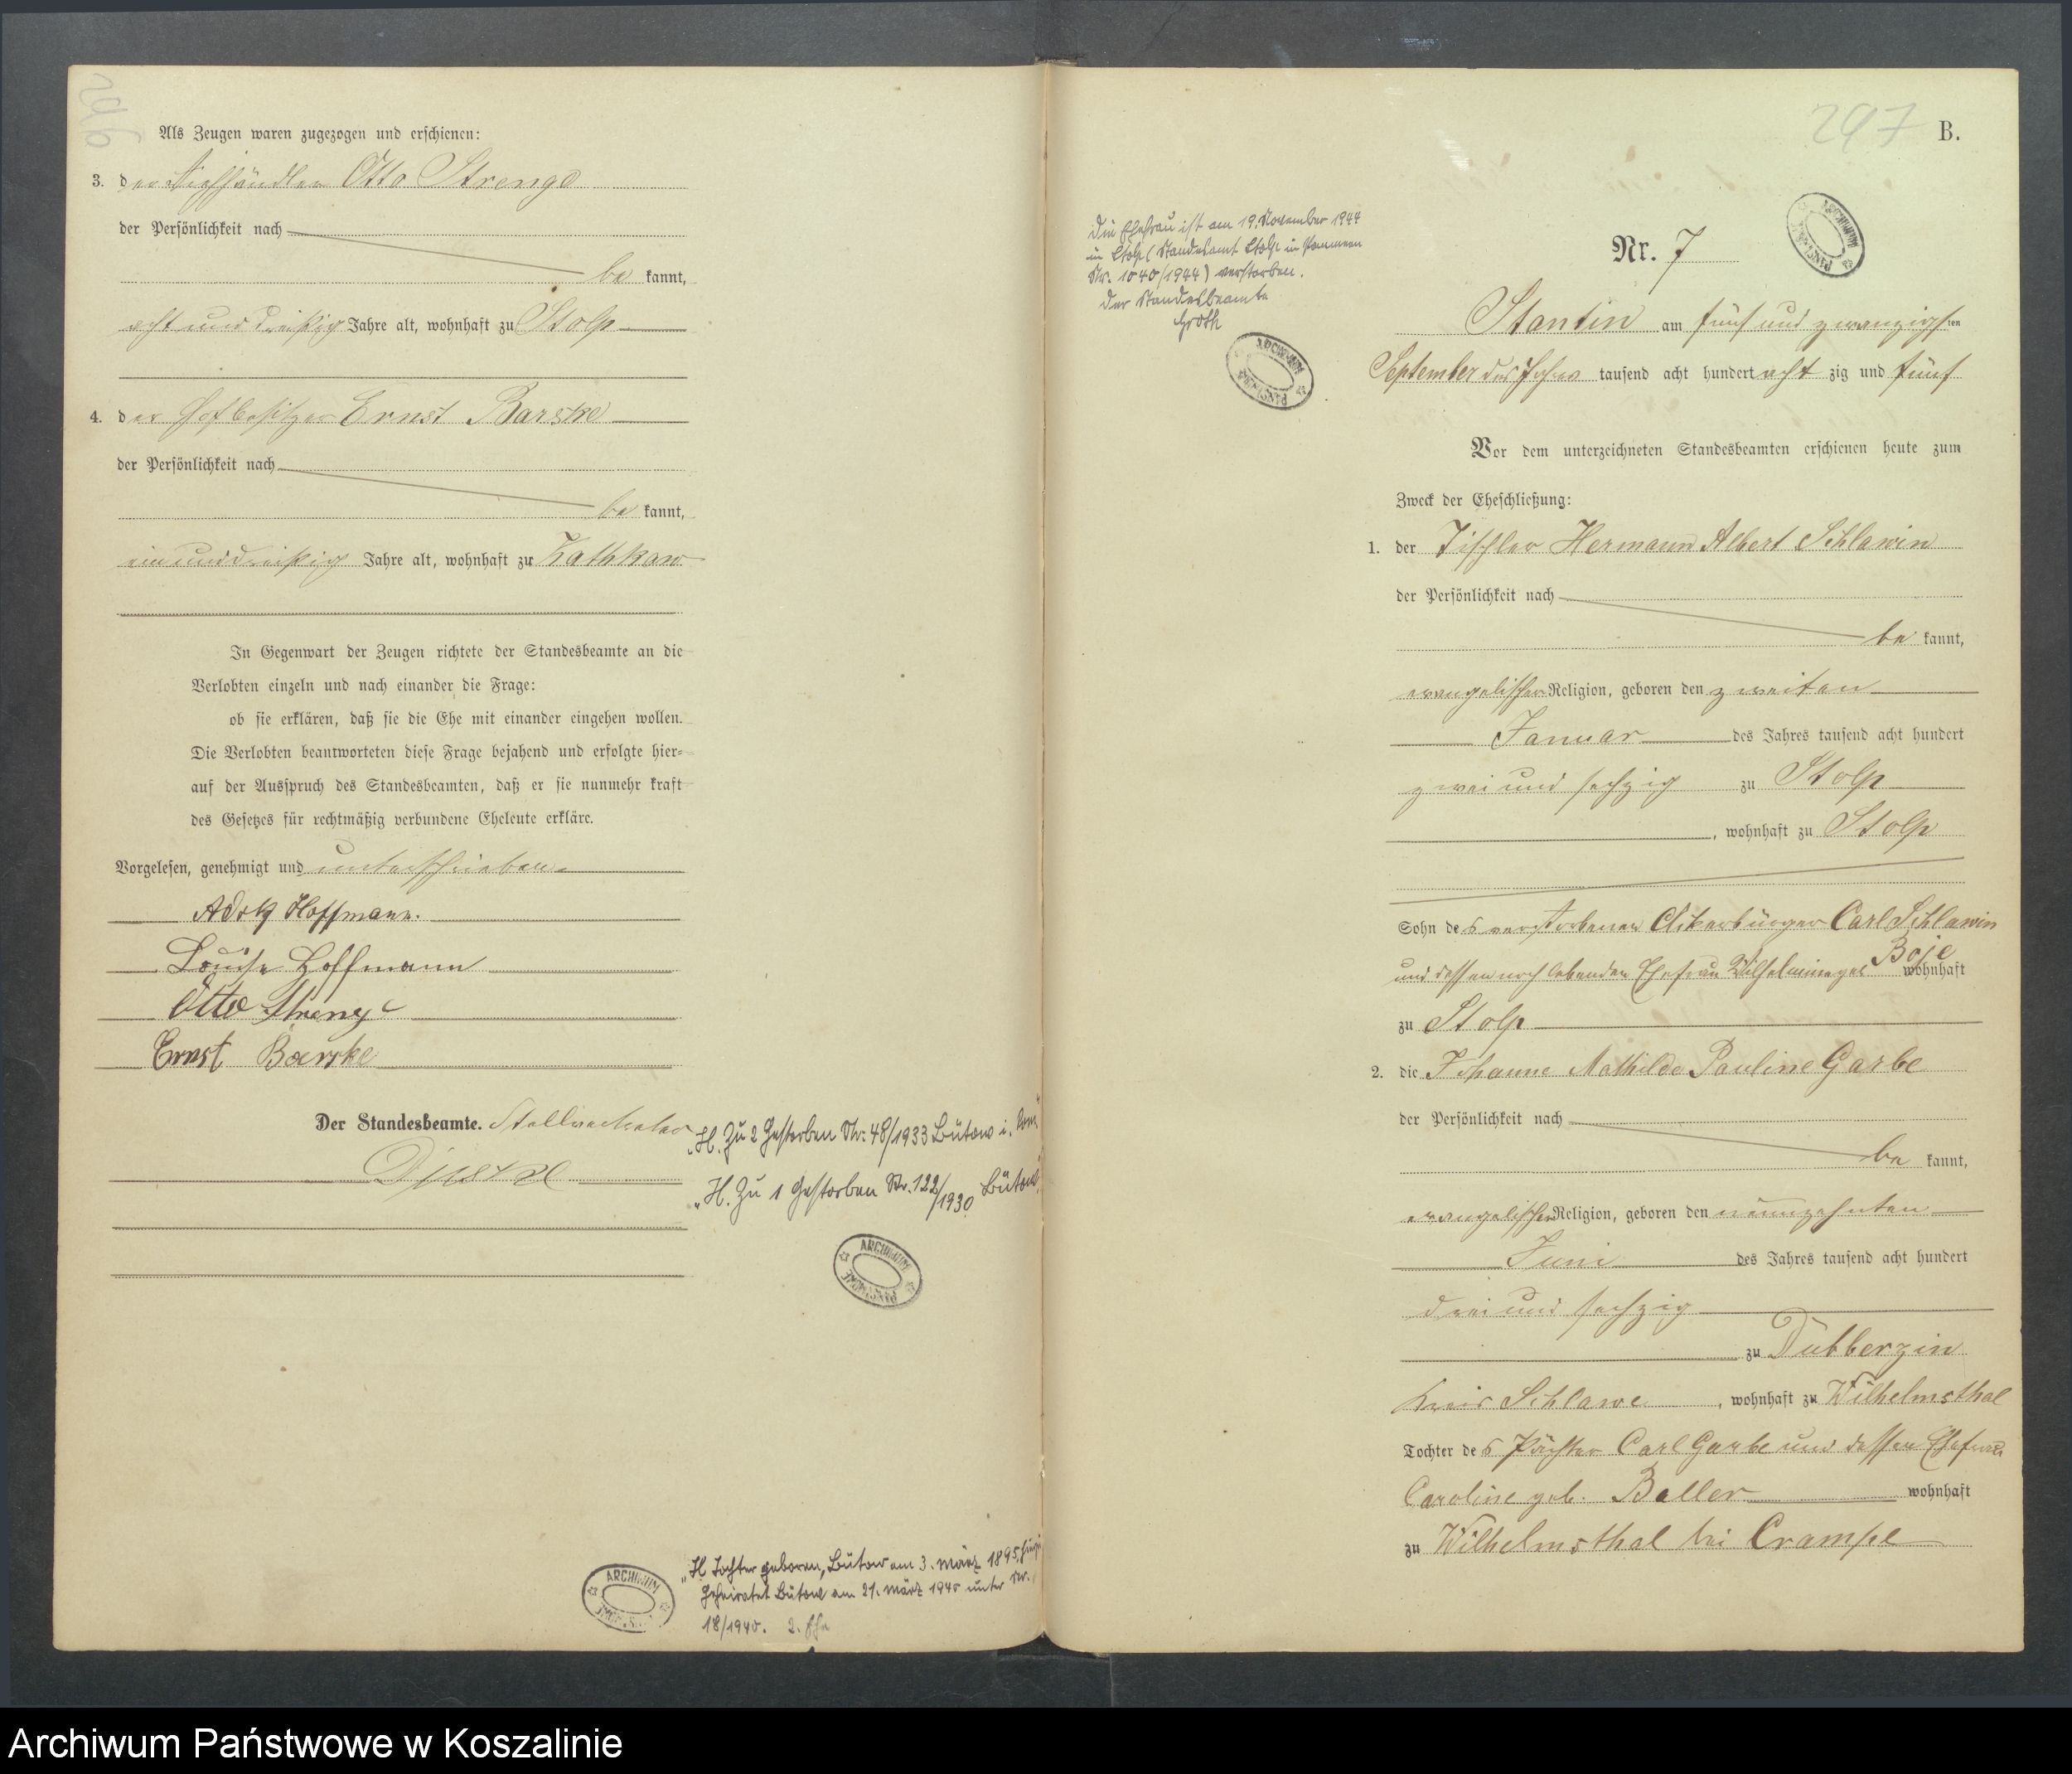 296
Als Zeugen waren zugezogen und erschienen:
3. der Viehhändler Otto Strenge
der Persönlichkeit nach
be kannt,
acht und dreißig Jahre alt, wohnhaft zu Stolp
4. der Hofbesitzer Ernst Barske
der Persönlichkeit nach
be kannt,
ein und dreißig Jahre alt, wohnhaft zu Kathkow
In Gegenwart der Zeugen richtete der Standesbeamte an die
Verlobten einzeln und nach einander die Frage:
ob sie erklären, daß sie die Ehe mit einander eingehen wollen.
Die Verlobten beantworteten diese Frage bejahend und erfolgte hier-
auf der Ausspruch des Standesbeamten, daß er sie nunmehr kraft
des Gesetzes für rechtmäßig verbundene Eheleute erkläre.
Vorgelesen, genehmigt und unterschrieben
Hoffmann.
Louise Hoffmann
Otto Strenge
Ernst Barske
Der Standesbeamte. Stellvertreter
„H. Zu 2 Gestorben Nr. 48/1933 Bütow i. Pom"
„H. Zu 1 Gestorben Nr. 122/1930 Bütow"
ARCHIWUM
„H. Tochter geboren, Bütow am 3. März 1895,
Geheiratet Bütow am 21. März 1940 unter Nr.
18/1940. 2. Ehe
ARCHIWUM
297
B.
ARCHIWUM
Die Ehefrau ist am 19. November 1944
in Stolp (Standesamt Stolp in Pommern
Nr. 1040/1944) verstorben.
Der Standesbeamte
Groth
ARCHIWUM
Nr. 7
Stantin am fünf und zwanzigsten
September des Jahres tausend acht hundert acht zig und fünf
Vor dem unterzeichneten Standesbeamten erschienen heute zum
Zweck der Eheschließung:
1. der Tischler Hermann Albert Schlawin
der Persönlichkeit nach
be kannt,
evangelischer Religion, geboren den zweiten
Januar des Jahres tausend acht hundert
zwei und sechzig zu Stolp
, wohnhaft zu Stolp
Sohn des verstorbenen Ackerbürger Carl Schlawin
und dessen noch lebenden Ehefrau Wilhelmine geb Boje wohnhaft
zu Stolp
2. die Johanne Mathilde Pauline Garbe
der Persönlichkeit nach
be kannt,
evangelischer Religion, geboren den neunzehnten
Juni des Jahres tausend acht hundert
drei und sechzig
zu Dübberzin
Kreis Schlawe , wohnhaft zu Wilhelmsthal
Tochter des Pächter Carl Garbe und dessen Ehefrau
Caroline geb. Baller wohnhaft
zu Wilhelmsthal bei Crampe
Archiwum Państwowe w Koszalinie